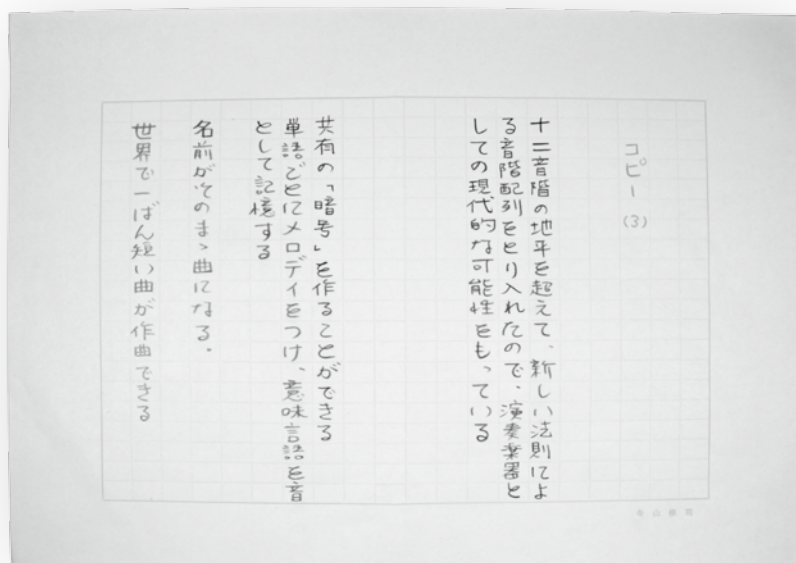 コピー(3)
十二音階の地平を超えて、新しい法則によ
る音階配列をとり入れたので、演奏楽器と
しての現代的な可能性をもっている
共有の「暗号」を作ることができる
単語ごとにメロディをつけ、意味言語を音
として記憶する
名前がそのまゝ曲になる。
世界で一ばん短い曲が作曲できる